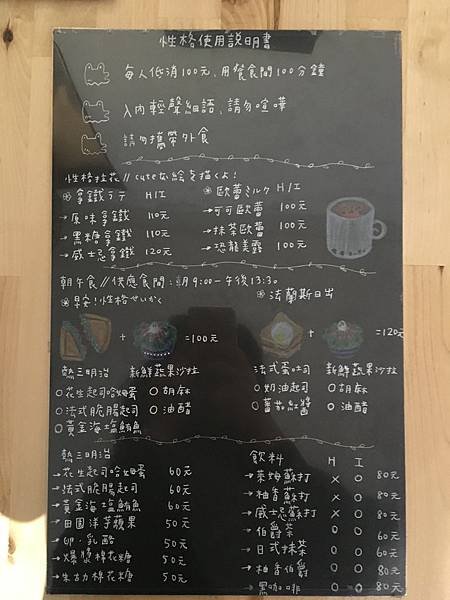 性格使用說明書
每人低消100元,用餐時間100分鐘
入內輕聲細語,請勿喧嘩
請勿攜帶外食
性格拉花//cuteな絵を描くよ!
拿鐵ラテ H/I
→原味拿鐵 110元
→黑糖拿鐵 110元
→威士忌拿鐵 120元
歐蕾ミルク H/I
→可可歐蕾 100元
→抹茶歐蕾 100元
→恐龍美露 100元
朝午食//供應時間:朝9:00-午後13:30
早安!性格せいかく
+ =100元
熱三明治 新鮮蔬果沙拉
花生起司哈姆蛋 胡麻
法式脆腸起司 油醋
黃金海塩鮪魚
法蘭斯日出
+ =120元
法式蛋吐司 新鮮蔬果沙拉
奶油起司 胡麻
蕃茄紅醬 油醋
熱三明治
→花生起司哈姆蛋 60元
→法式脆腸起司 60元
→黃金海塩鮪魚 60元
→田園洋芋蘋果 50元
→卵·乳酪 50元
→爆漿棉花糖 50元
→朱古力棉花糖 50元
飲料 H I
→萊姆蘇打 X O 80元
→柚香蘇打 X O 80元
→威士忌蘇打 X O 80元
→伯爵茶 O O 60元
→日式抹茶 O O 60元
→柚香伯爵 O O 80元
→黑咖啡 O O 80元